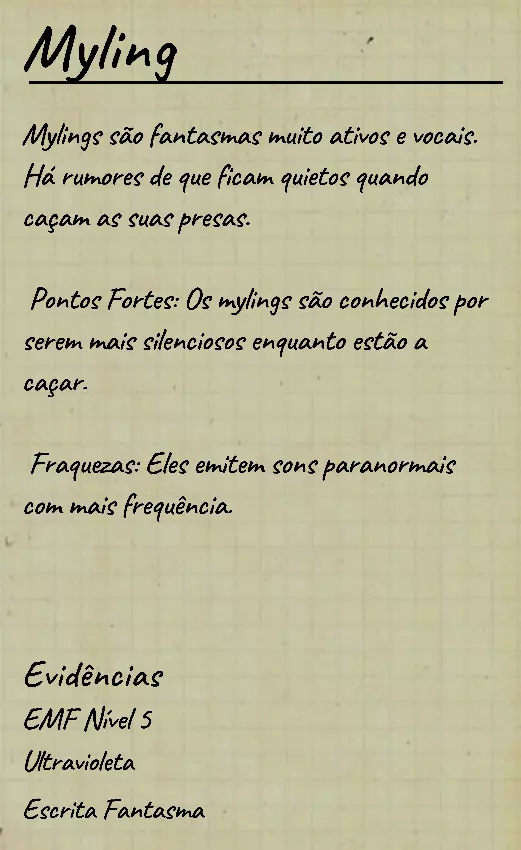 Myling
Mylings são fantasmas muito ativos e vocais.
Há rumores de que ficam quietos quando
caçam as suas presas.
Pontos Fortes: Os mylings são conhecidos por
serem mais silenciosos enquanto estão a
caçar.
Fraquezas: Eles emitem sons paranormais
com mais frequência.
Evidências
EMF Nível 5
Ultravioleta
Escrita Fantasma